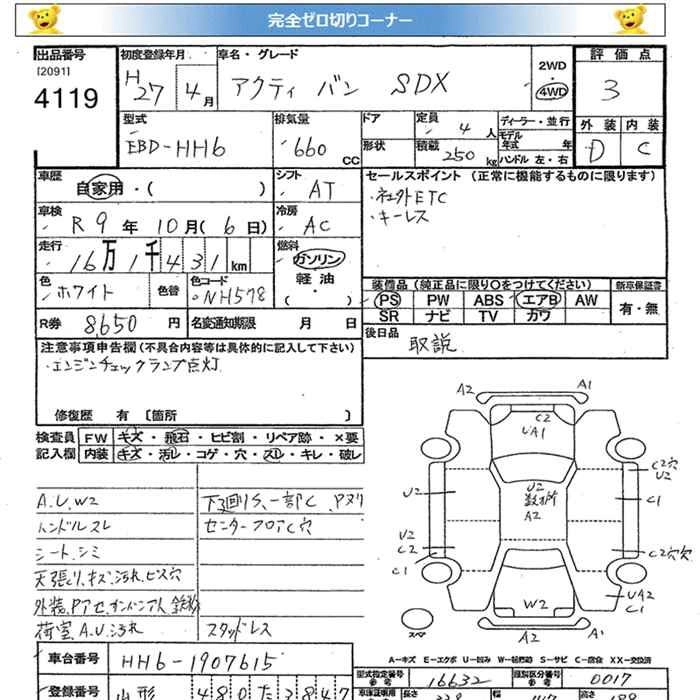 完全ゼロ切りコーナー
出品番号 初度登録年月 車名・グレード 2WD 評価点
[2091] H27 4月 アクティ バン SDX 4WD 3
4119
型式 排気量 ドア 定員 ディーラー・並行 外装 内装
EBD-HH6 660 CC 形状 4人 モデル年式 年 D C
積載 250kg ハンドル 左・右
車歴 シフト セールスポイント (正常に機能するものに限ります)
自家用・( ) AT ・社外ETC
車検 冷房 ・キーレス
R9年10月(6日) AC
走行 燃料
16万1千431km ガソリン
色 色替 色コード 軽油 装備品 (純正品に限り○をつけてください) 新車保証書
ホワイト NH578 ・( ) PS PW ABS エアB AW 有・無
SR ナビ TV カワ
R券 8,650円 名変通知期限 月 日 後日品
取説
注意事項申告欄 (不具合内容等は具体的に記入して下さい)
・エンジンチェックランプ点灯
修復歴 有 〔箇所 〕
検査員 FW キズ・飛石・ヒビ割・リペア跡・×要
記入欄 内装 キズ・汚レ・コゲ・穴・スレ・キレ・破レ
A.U.W2 下廻りS、一部C、Pヌリ
ハンドルスレ センターフロアC穴
シート、シミ
天張り、キズ、汚れ、ビス穴
荷室A.U.汚れ スタッドレス
A2 A1
C2
UA1
C2穴
U2
U2 U2 C1
数ヶ所
A2
U2
C2 C2穴穴
C1
UA2
W2 C1
スペア A2 A1
A-キズ E-エクボ U-凹み W-補修跡 S-サビ C-腐食 XX-交換済
車台番号 HH6-1907615 型式指定番号 16632 類別区分番号 0017
登録番号 山形 480 た 3847